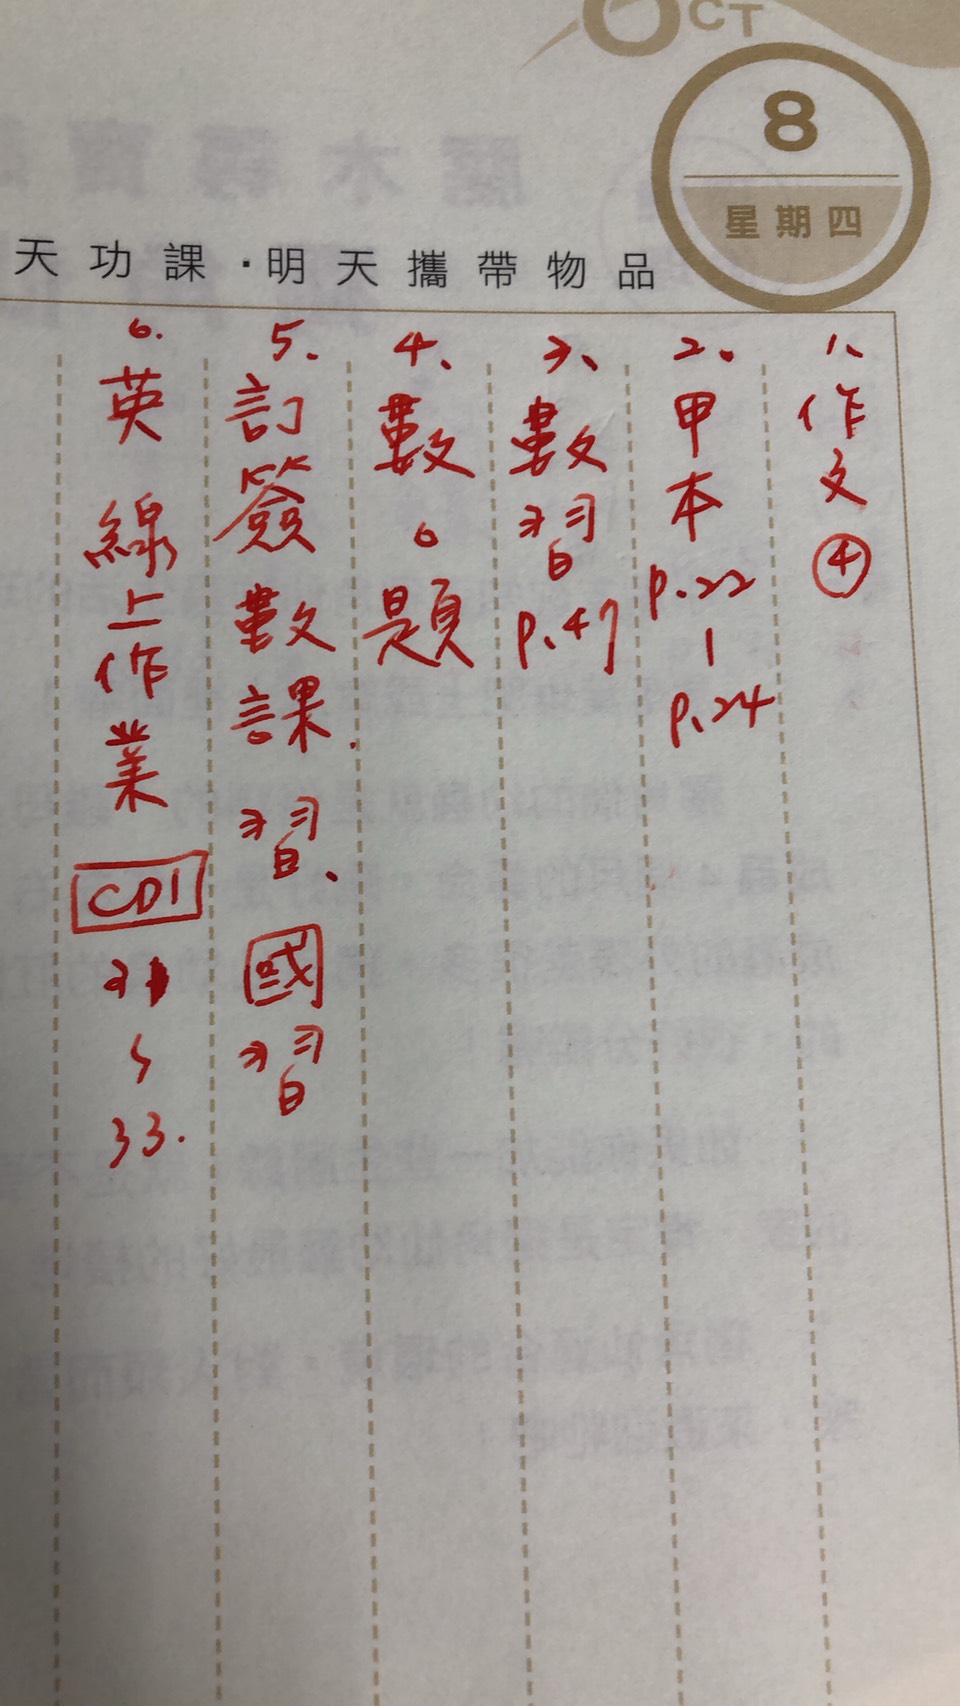 OCT
8
星期四
天功課·明天攜帶物品
1、作文④
2.甲本p.22-p.24
3、數習p.47
4、數6題
5、訂簽數課.習、國習
6.英 線上作業 CD1
33.